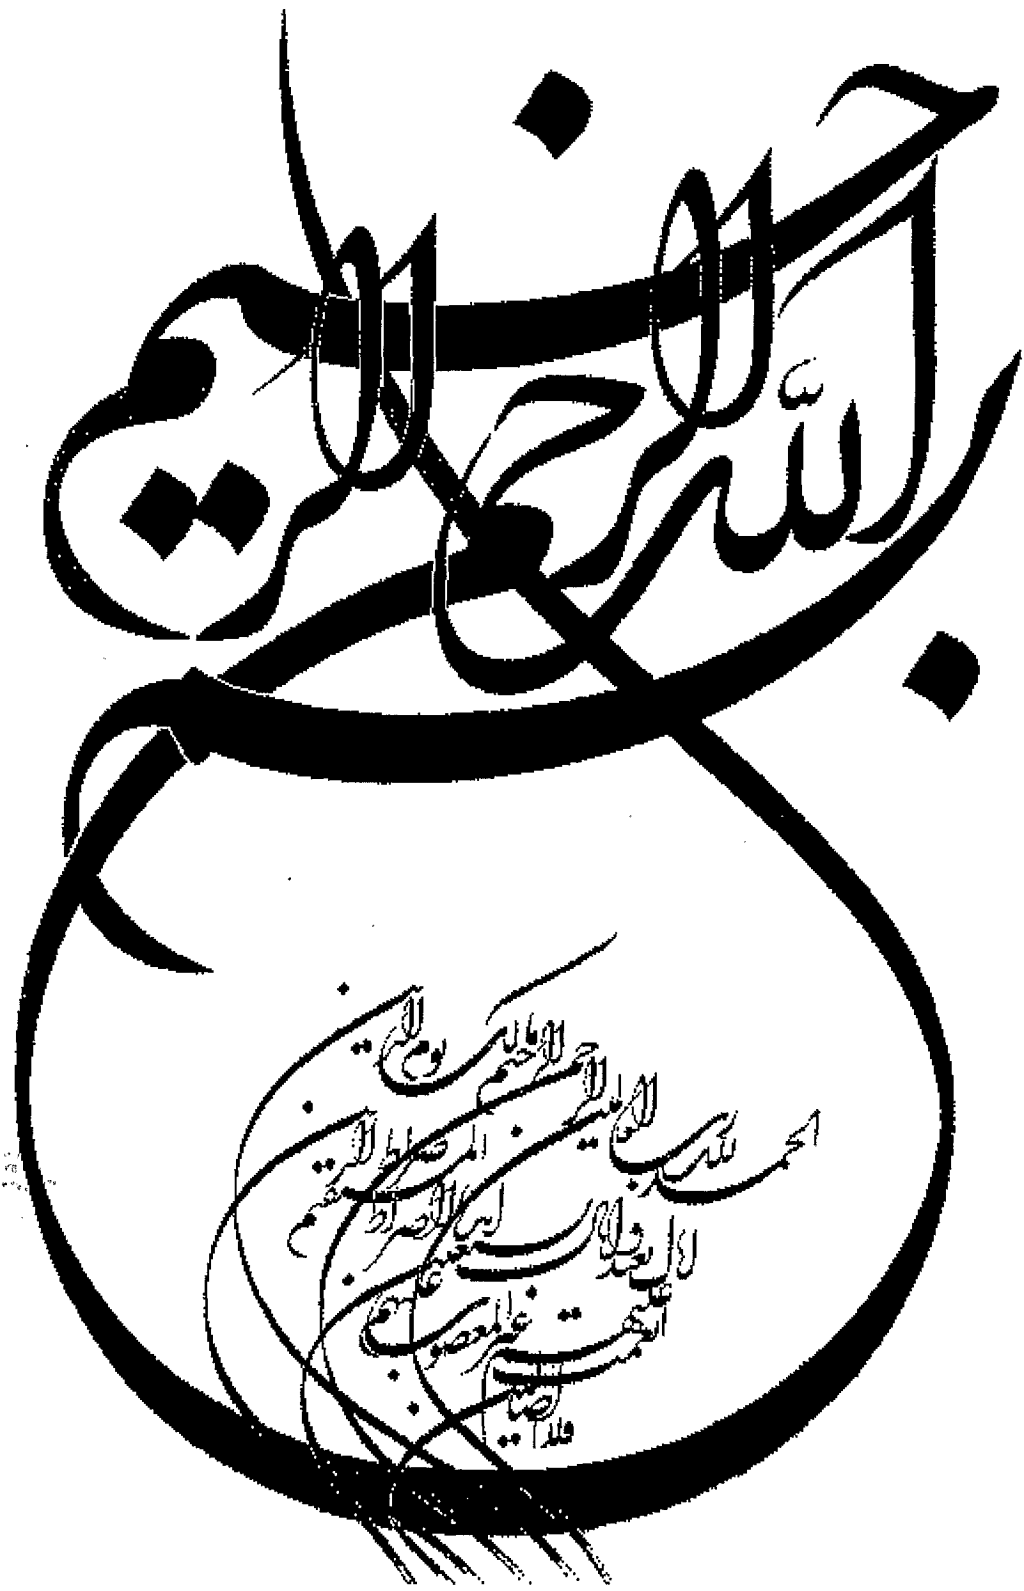 بسم الله الرحمن الرحيم
الحمد لله رب العالمين
الرحمن الرحيم
مالك يوم الدين
اياك نعبد واياك نستعين
اهدنا الصراط المستقيم
صراط الذين
انعمت عليهم
غير المغضوب عليهم
ولا الضالين